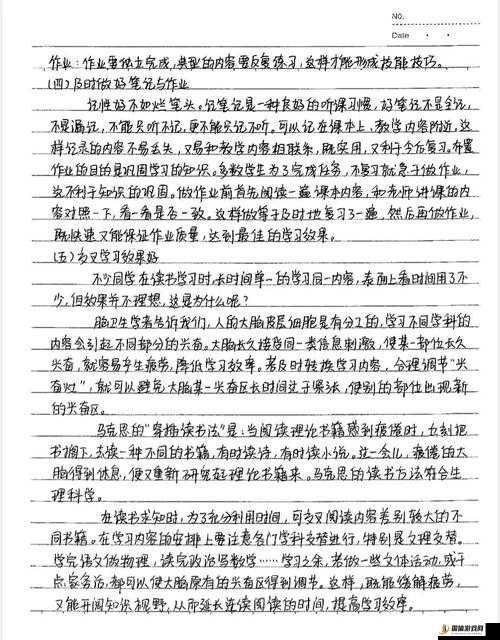 NO.
Date
作业：作业要独立完成，典型的内容要反复练习，这样才能形成技能技巧。
(四)及时做好笔记与作业
记性好不如烂笔头。记笔记是一种良好的听课习惯，好笔记不是全记，
不是漏记，不能只听不记，更不能只记不听。可以记在课本上，教学内容附近，这
样记录的内容不易丢失，又易和教学内容相联系，既实用，又利于今后复习。布置
作业的目的是巩固学习的知识。多数学生为了完成任务，不复习就急于做作业，
这不利于知识的巩固。做作业前首先阅读一遍课本内容，和老师讲课的内
容对照一下，看一看是否一致。这样做等于及时地复习了一遍，然后再做作业，
既快速又能保证作业质量，达到最佳的学习效果。
(五)交叉学习效果好
不少同学在读书学习时，长时间单一的学习同一内容，表面上看时间用了不
少，但效果并不理想，这是为什么呢？
脑卫生学者告诉我们，人的大脑皮层细胞是有分工的，学习不同学科的
内容会引起不同部分的兴奋。大脑长久接受同一类信息刺激，使某一部位长久
兴奋，就容易产生疲劳，降低学习效率。若及时转换学习内容，合理调节“兴
奋灶”，就可以避免大脑某一兴奋区长时间过于紧张，使别的部位出现新
的兴奋区。
马克思的“穿插读书法”是：当阅读理论书籍感到疲倦时，立刻把
书搁下，去读一种不同的书籍，有时读诗，有时读小说。过一会儿，疲倦的大
脑得到休息，便又重新研究起理论书籍来。马克思的读书方法符合生
理科学。
在读书求知时，为了充分利用时间，可交叉阅读内容差别较大的不
同书籍。在学习内容的安排上要注意各门学科交替进行，特别是文理交替。
学完语文做物理，读完政治写数学……学习之余，若做一些文体活动，或干
点家务活，都可以使大脑原有的兴奋区得到调节。这样，既能缓解疲劳，
又能开阔知识视野，从而延长连续阅读的时间，提高学习效率。